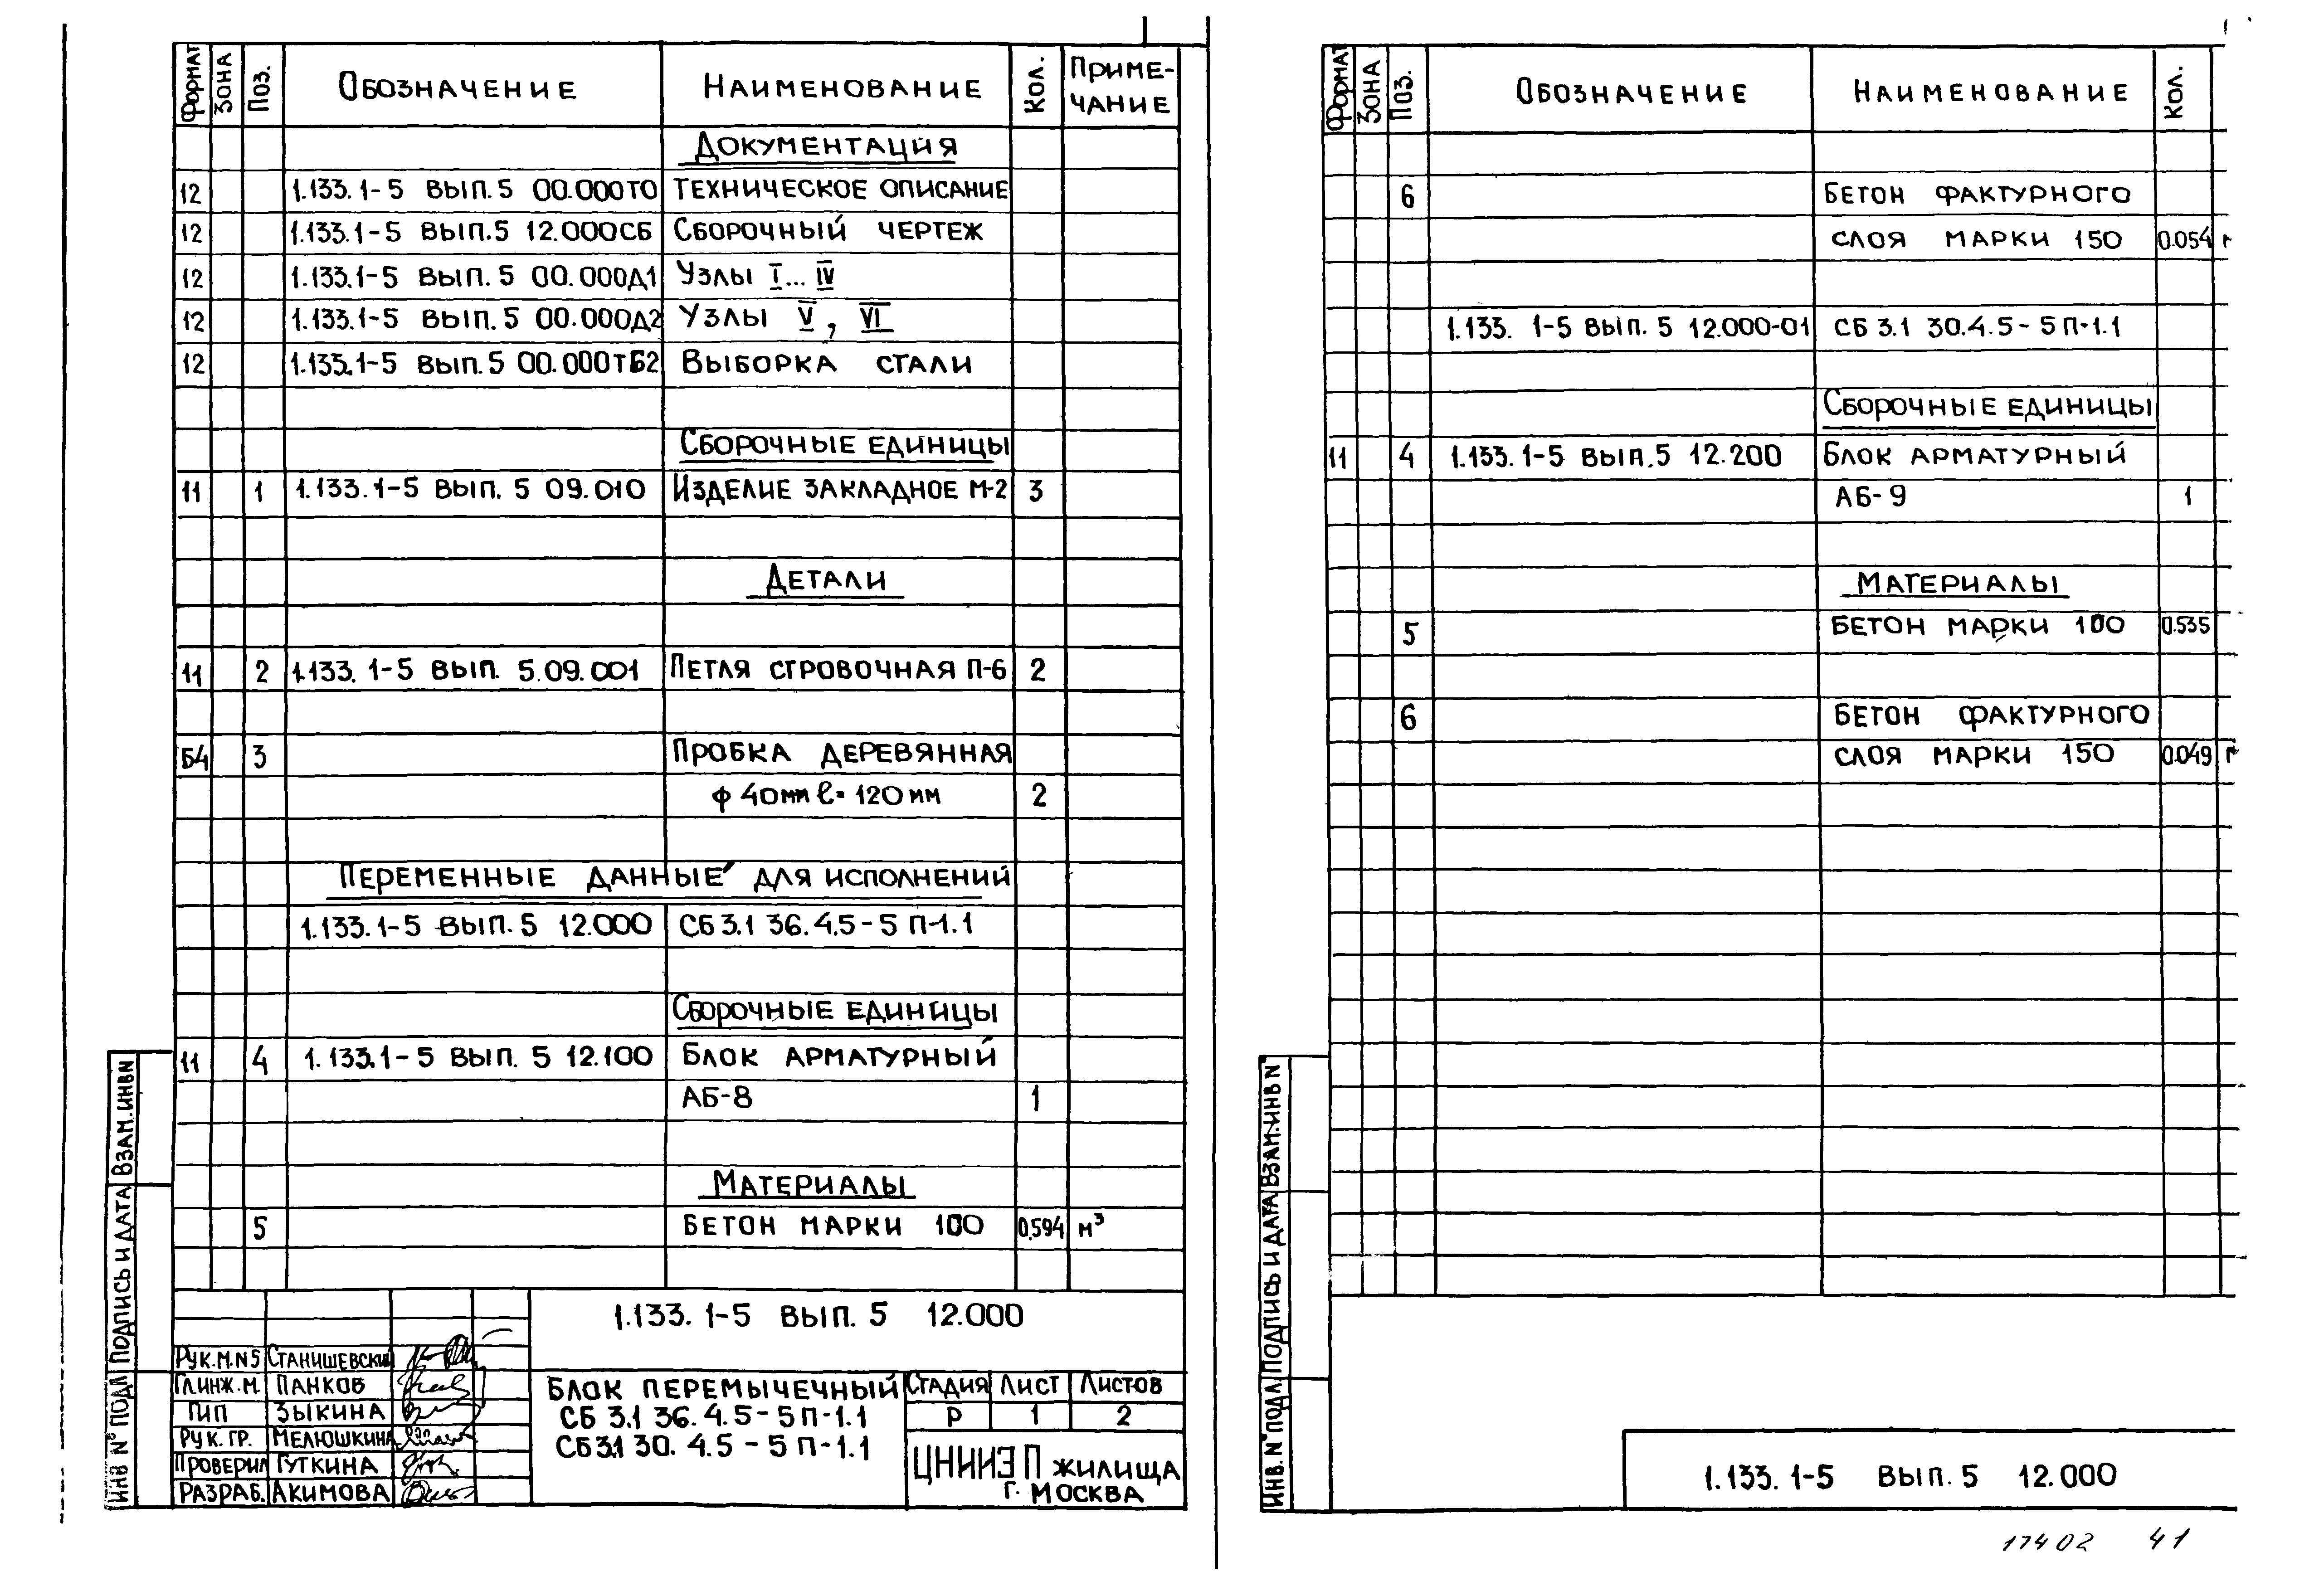 Формат Зона Поз. Обозначение Наименование Кол. Примечание
Документация
12 1.133.1-5 вып.5 00.000ТО Техническое описание
12 1.133.1-5 вып.5 12.000СБ Сборочный чертеж
12 1.133.1-5 вып.5 00.000Д1 Узлы I...IV
12 1.133.1-5 вып.5 00.000Д2 Узлы V, VI
12 1.133.1-5 вып.5 00.000ТБ2 Выборка стали
Сборочные единицы
11 1 1.133.1-5 вып.5 09.010 Изделие закладное М-2 3
Детали
11 2 1.133.1-5 вып. 5.09.001 Петля стровочная П-6 2
Б4 3 Пробка деревянная
ф 40мм ℓ=120мм 2
Переменные данные для исполнений
1.133.1-5 вып.5 12.000 СБ3.1 36.4.5-5П-1.1
Сборочные единицы
11 4 1.133.1-5 вып. 5 12.100 Блок арматурный
АБ-8 1
Материалы
5 Бетон марки 100 0.594 м³
1.133.1-5 вып. 5 12.000
Рук.м.N5 Станишевский
Гл.инж.м. Панков
ГИП Зыкина
Рук.гр. Мелюшкина
Проверил Гуткина
Разраб. Акимова
Блок перемычечный
СБ 3.1 36.4.5-5П-1.1
СБ3.1 30.4.5-5П-1.1
Стадия Лист Листов
Р 1 2
ЦНИИЭП жилища
г. Москва
Взам.инв N
Подпись и дата
Инв № подл
Формат Зона Поз. Обозначение Наименование Кол.
6 Бетон фактурного
слоя марки 150 0.054
1.133.1-5 вып.5 12.000-01 СБ3.1 30.4.5-5П-1.1
Сборочные единицы
11 4 1.133.1-5 вып.5 12.200 Блок арматурный
АБ-9 1
Материалы
5 Бетон марки 100 0.535
6 Бетон фактурного
слоя марки 150 0.049
Взам.инв N
Подпись и дата
Инв. № подл
1.133.1-5 вып. 5 12.000
17402 41